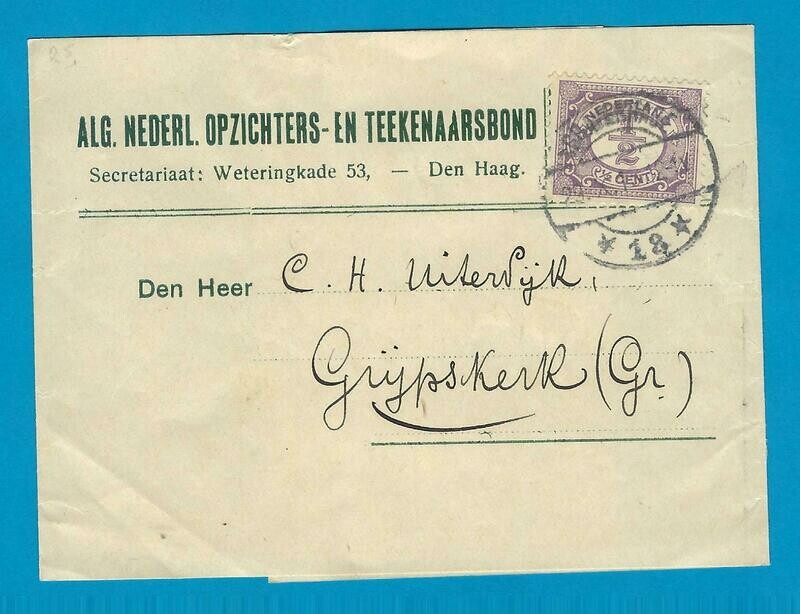 25
ALG. NEDERL. OPZICHTERS- EN TEEKENAARSBOND
Secretariaat: Weteringkade 53, — Den Haag.
NEDERLAND
1/2
½ CENT
* 18 *
Den Heer C. H. Uiterwijk,
Grijpskerk (Gr.)